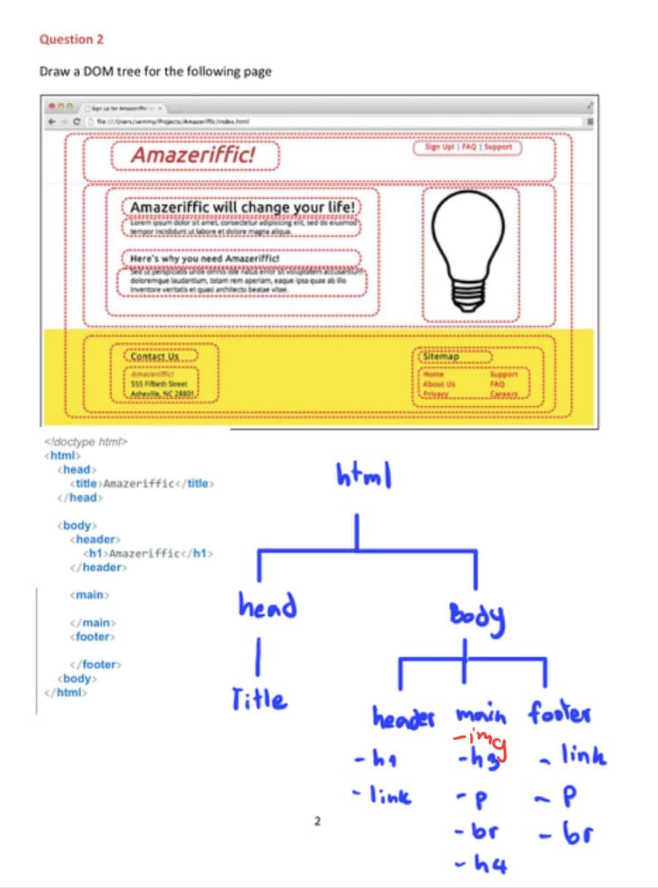 Question 2
Draw a DOM tree for the following page
Sign up for Amazeriffic
file:///Users/semmy/Projects/Amazeriffic/index.html
Amazeriffic!
Sign Up! | FAQ | Support
Amazeriffic will change your life!
Lorem ipsum dolor sit amet, consectetur adipisicing elit, sed do eiusmod
tempor incididunt ut labore et dolore magna aliqua.
Here's why you need Amazeriffic!
Sed ut perspiciatis unde omnis iste natus error sit voluptatem accusantium
doloremque laudantium, totam rem aperiam, eaque ipsa quae ab illo
inventore veritatis et quasi architecto beatae vitae.
Contact Us
Amazeriffic!
555 Fiftieth Street
Asheville, NC 28801
Sitemap
Home Support
About Us FAQ
Privacy Careers
<!doctype html>
<html>
<head>
<title>Amazeriffic</title>
</head>
<body>
<header>
<h1>Amazeriffic</h1>
</header>
<main>
</main>
<footer>
</footer>
<body>
</html>
html
head Body
Title
header main footer
-img
-h1 -h3 -link
-link -p -p
-br -br
-h4
2